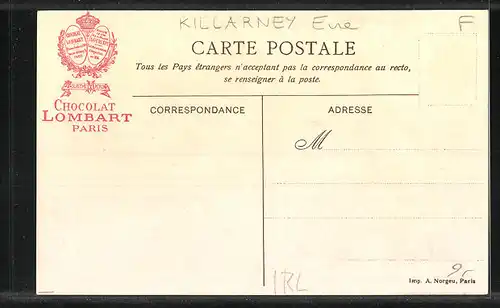 KILLARNEY Eire
F
CARTE POSTALE
Tous les Pays étrangers n'acceptant pas la correspondance au recto,
se renseigner à la poste.
CHOCOLAT
LOMBART
PARIS
CORRESPONDANCE
ADRESSE
M
IRL
9-
Imp. A. Norgeu, Paris